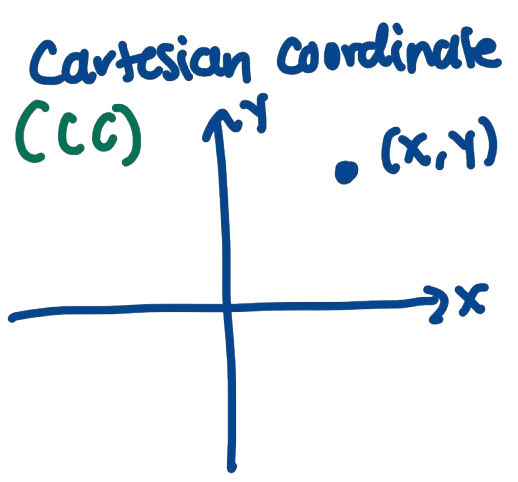 Cartesian coordinate
(CC)
Y
(X,Y)
X